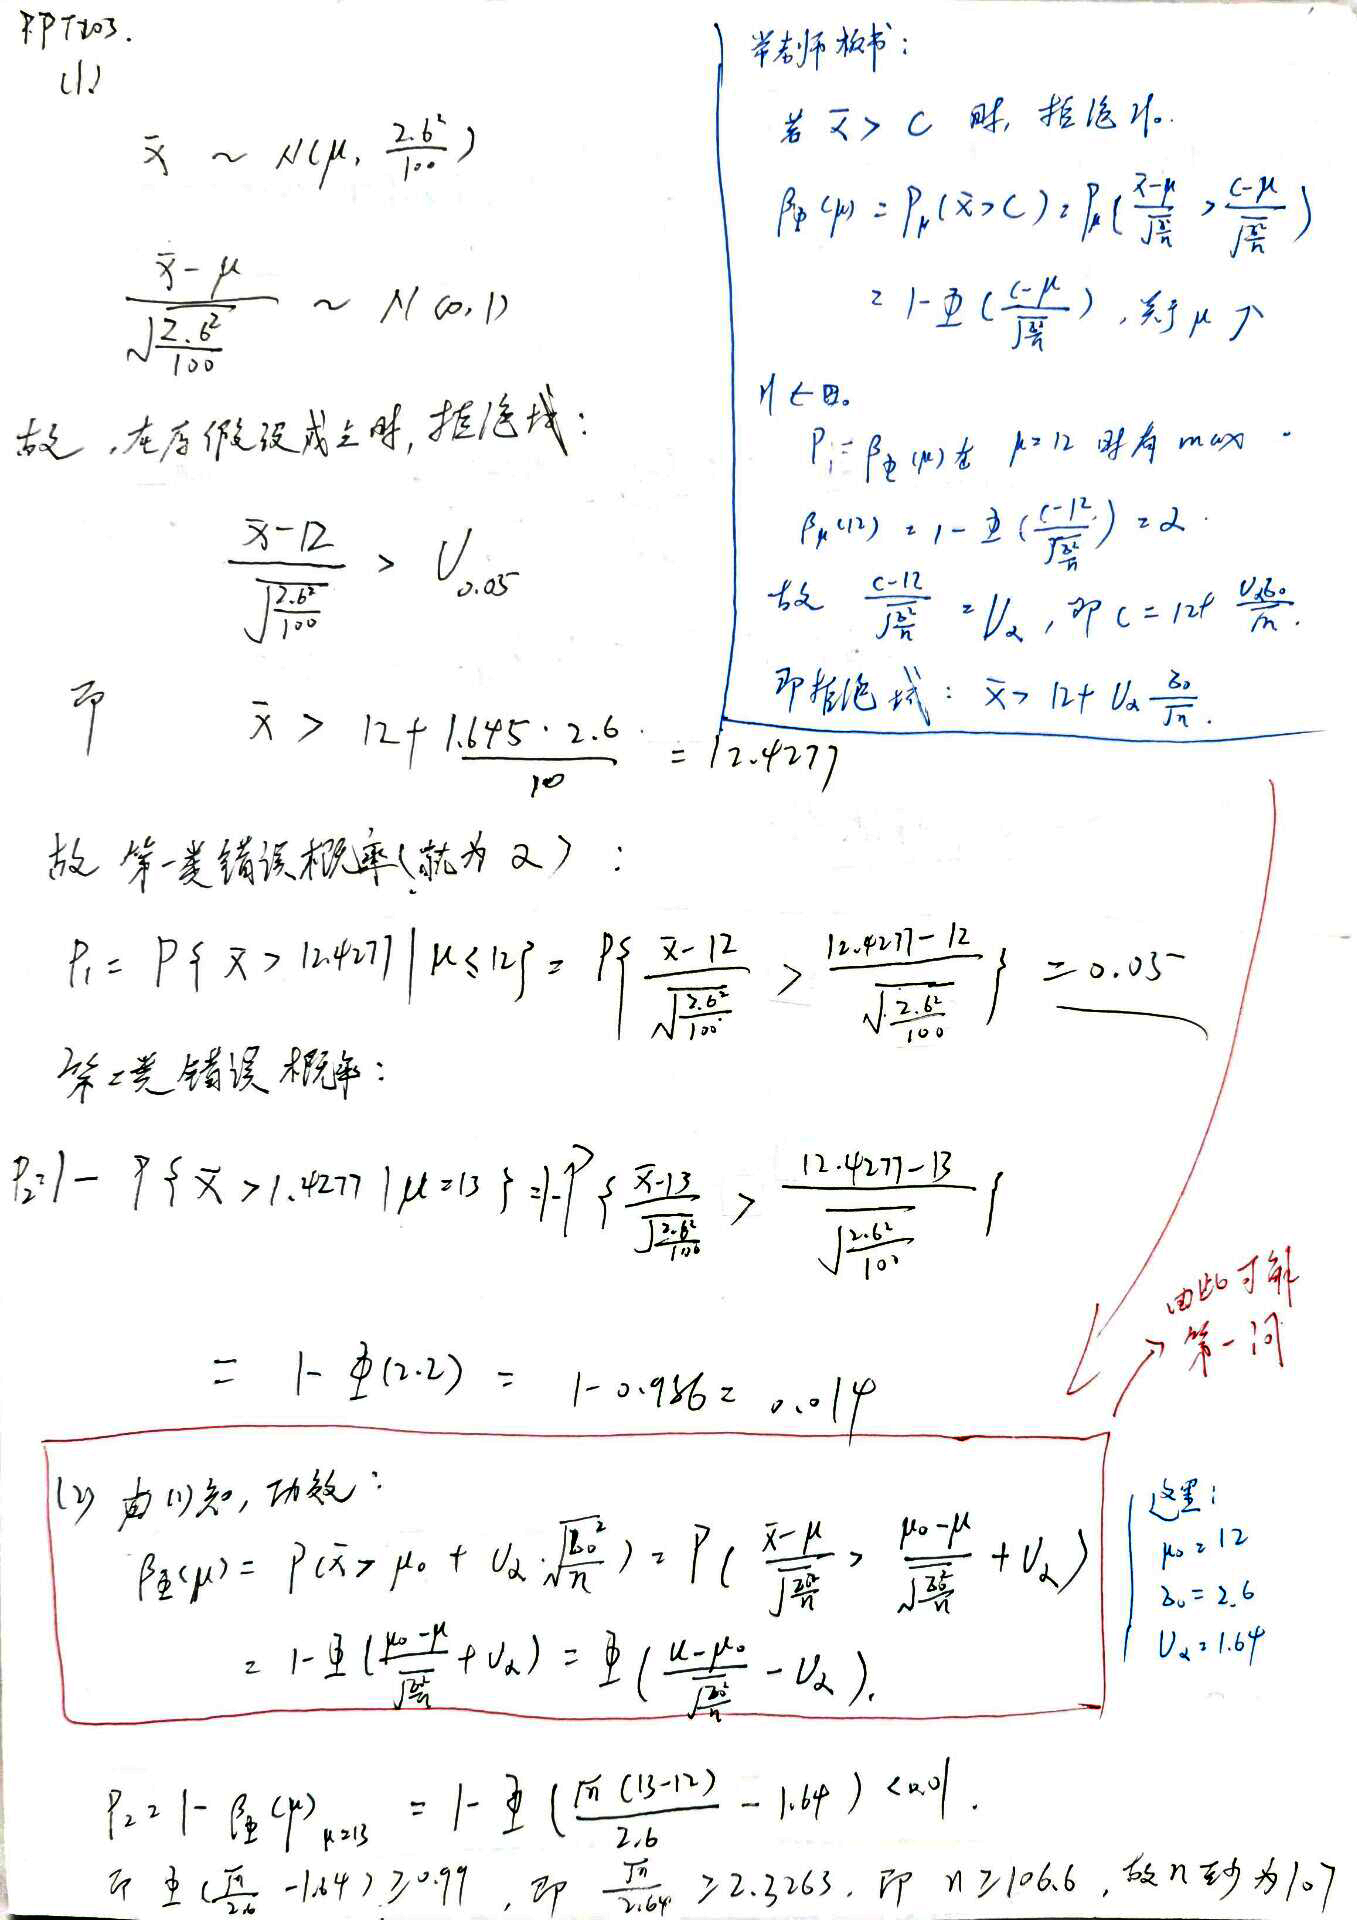 PPT203.
(1)
x̄ ~ N(μ, 2.6²/100)
(x̄-μ)/√(2.6²/100) ~ N(0,1)
故,在原假设成立时,拒绝域:
(x̄-12)/√(2.6²/100) > U_0.05
即 x̄ > 12+(1.645·2.6)/10 = 12.4277
故 第一类错误概率(就为α):
P₁= P{ x̄ > 12.4277 | μ≤12} = P{ (x̄-12)/√(2.6²/100) > (12.4277-12)/√(2.6²/100) } = 0.05
第二类错误概率:
P₂=1- P{ x̄ >1.4277 | μ=13 } =1-P{ (x̄-13)/√(2.6²/100) > (12.4277-13)/√(2.6²/100) }
= 1- Φ(2.2) = 1-0.986= 0.014
老师板书:
若 x̄ > C 时, 拒绝H₀.
β_Φ(μ) = P_μ(x̄>C) = P_μ( (x̄-μ)/√(σ²/n) > (C-μ)/√(σ²/n) )
= 1-Φ( (C-μ)/√(σ²/n) ) ,关于μ↗
μ∈Θ₀
P₁=β_Φ(μ)在 μ=12 时有 max.
β_μ(12) = 1-Φ( (C-12)/√(σ²/n) ) = α.
故 (C-12)/√(σ²/n) = U_α ,即 C = 12+ U_ασ₀/√n.
即拒绝域: x̄ > 12+ U_α σ₀/√n.
由此可解
第一问
(2) 由(1)知,功效:
β_Φ(μ)= P(x̄> μ₀ + U_α·√(σ₀²/n)) = P( (x̄-μ)/√(σ₀²/n) > (μ₀-μ)/√(σ₀²/n) + U_α)
= 1-Φ( (μ₀-μ)/√(σ₀²/n) + U_α) = Φ( (μ-μ₀)/√(σ₀²/n) - U_α ).
这里:
μ₀=12
σ₀=2.6
U_α=1.64
P₂=1- β_Φ(μ)_μ=13 = 1-Φ( √n(13-12)/2.6 - 1.64 ) <0.01.
即 Φ(√n/2.6 -1.64) ≥0.99 , 即 √n/2.64 ≥2.3263. 即 n≥106.6 ,故n至少为107